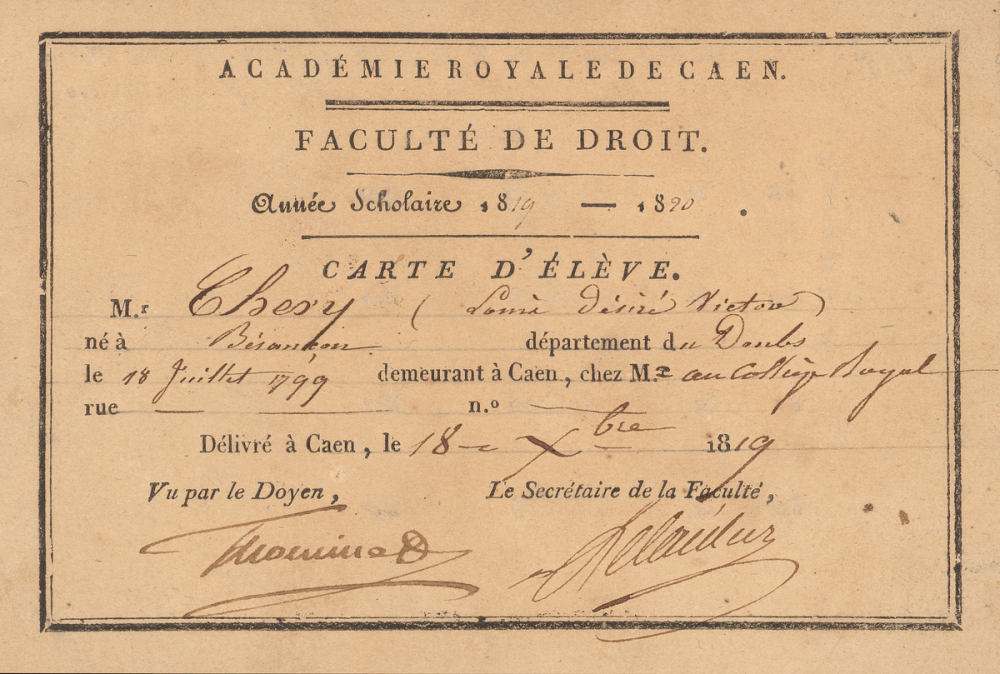 ACADÉMIE ROYALE DE CAEN.
FACULTÉ DE DROIT.
Année Scholaire 1819 — 1820
CARTE D'ÉLÈVE.
M.r Chery (Louis Désiré Victor)
né à Besançon département du Doubs
le 18 Juillet 1799 demeurant à Caen, chez M.r au Collège Royal
rue — n.o —
Délivré à Caen, le 18 Xbre 1819
Vu par le Doyen, Le Secrétaire de la Faculté,